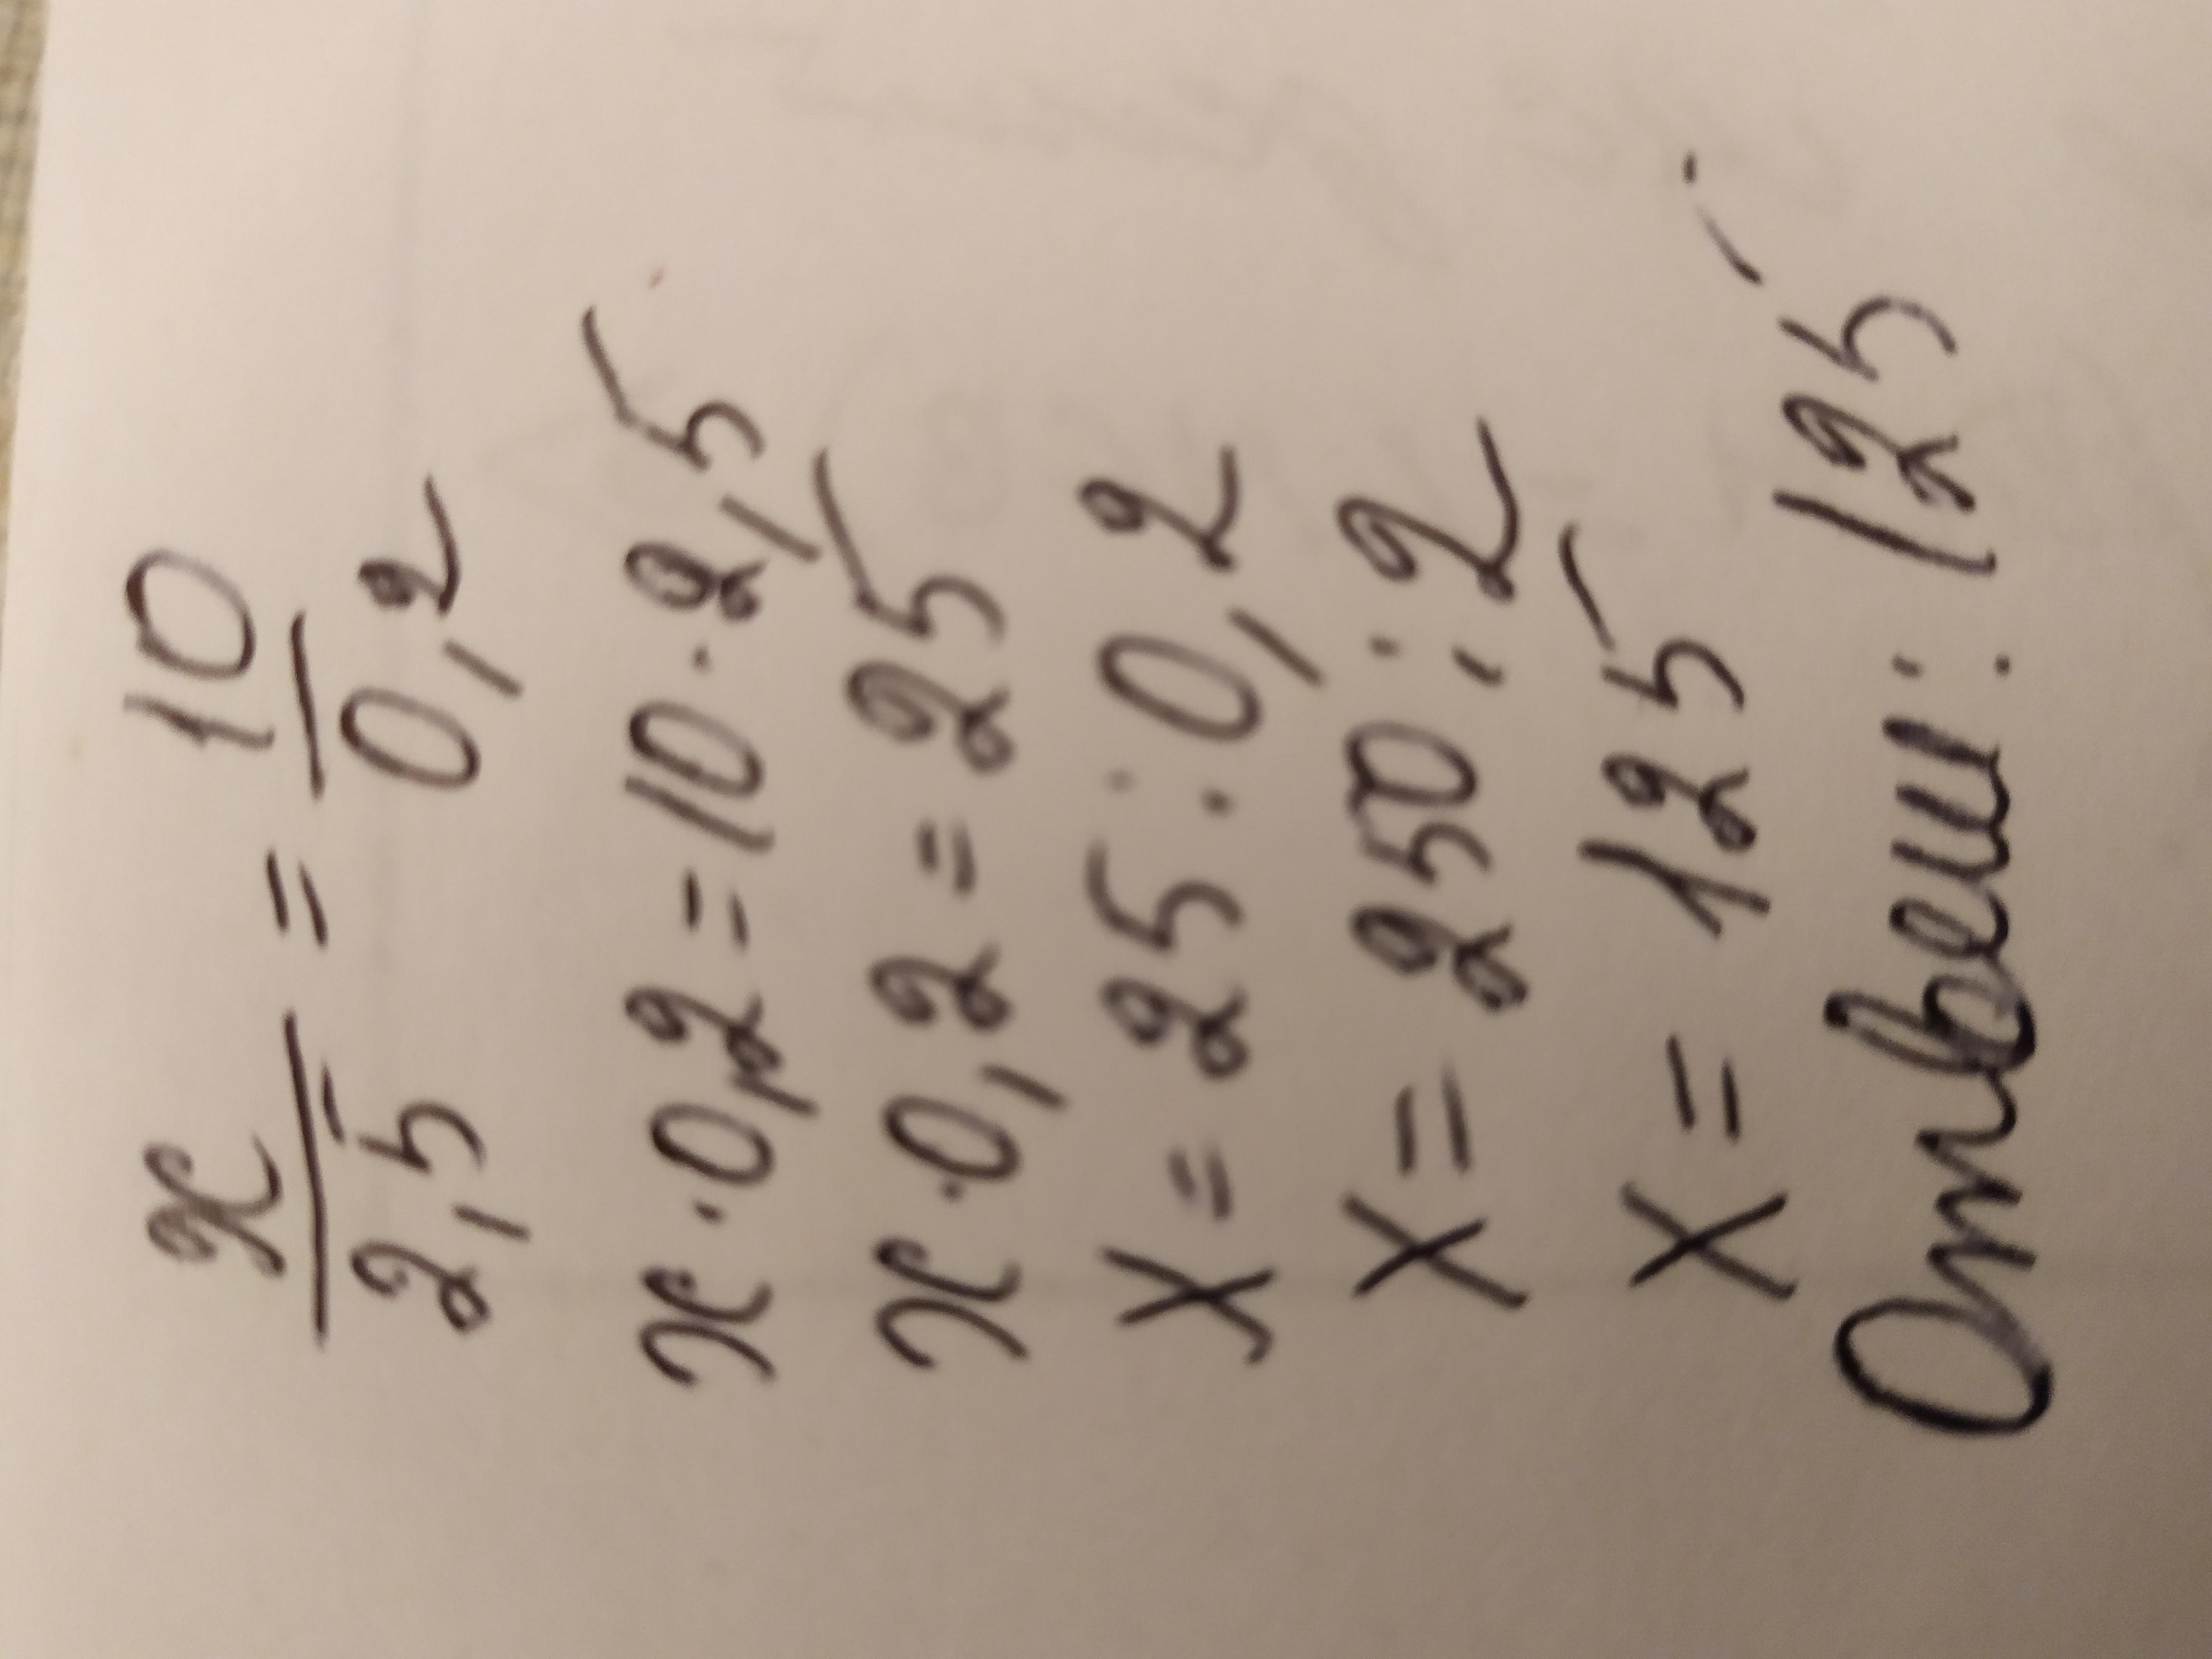 x/2,5 = 10/0,2
x · 0,2 = 10 · 2,5
x · 0,2 = 25
x = 25 : 0,2
x = 250 : 2
x = 125
Ответ: 125